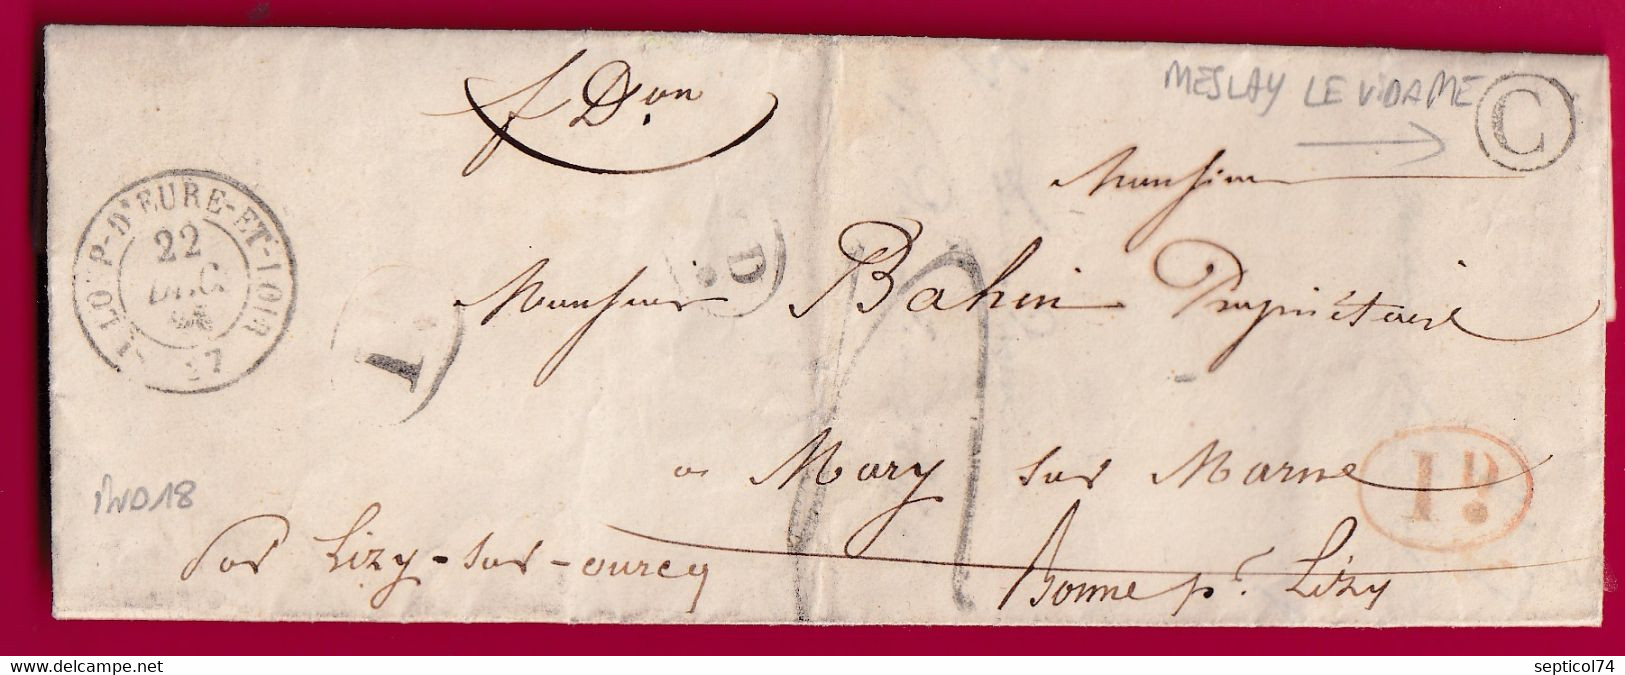 f Don
MESLAY LE VIDAME
C
Monsieur
ST-LOUP-D'EURE-ET-LOIR
22
DEC.
27
Monsieur Bahin Propriétaire
1
D.
a Mary sur Marne
1D.
IND18
par Lizy-sur-ourcq
Bonne pr. Lizy
www.delcampe.net
septicol74